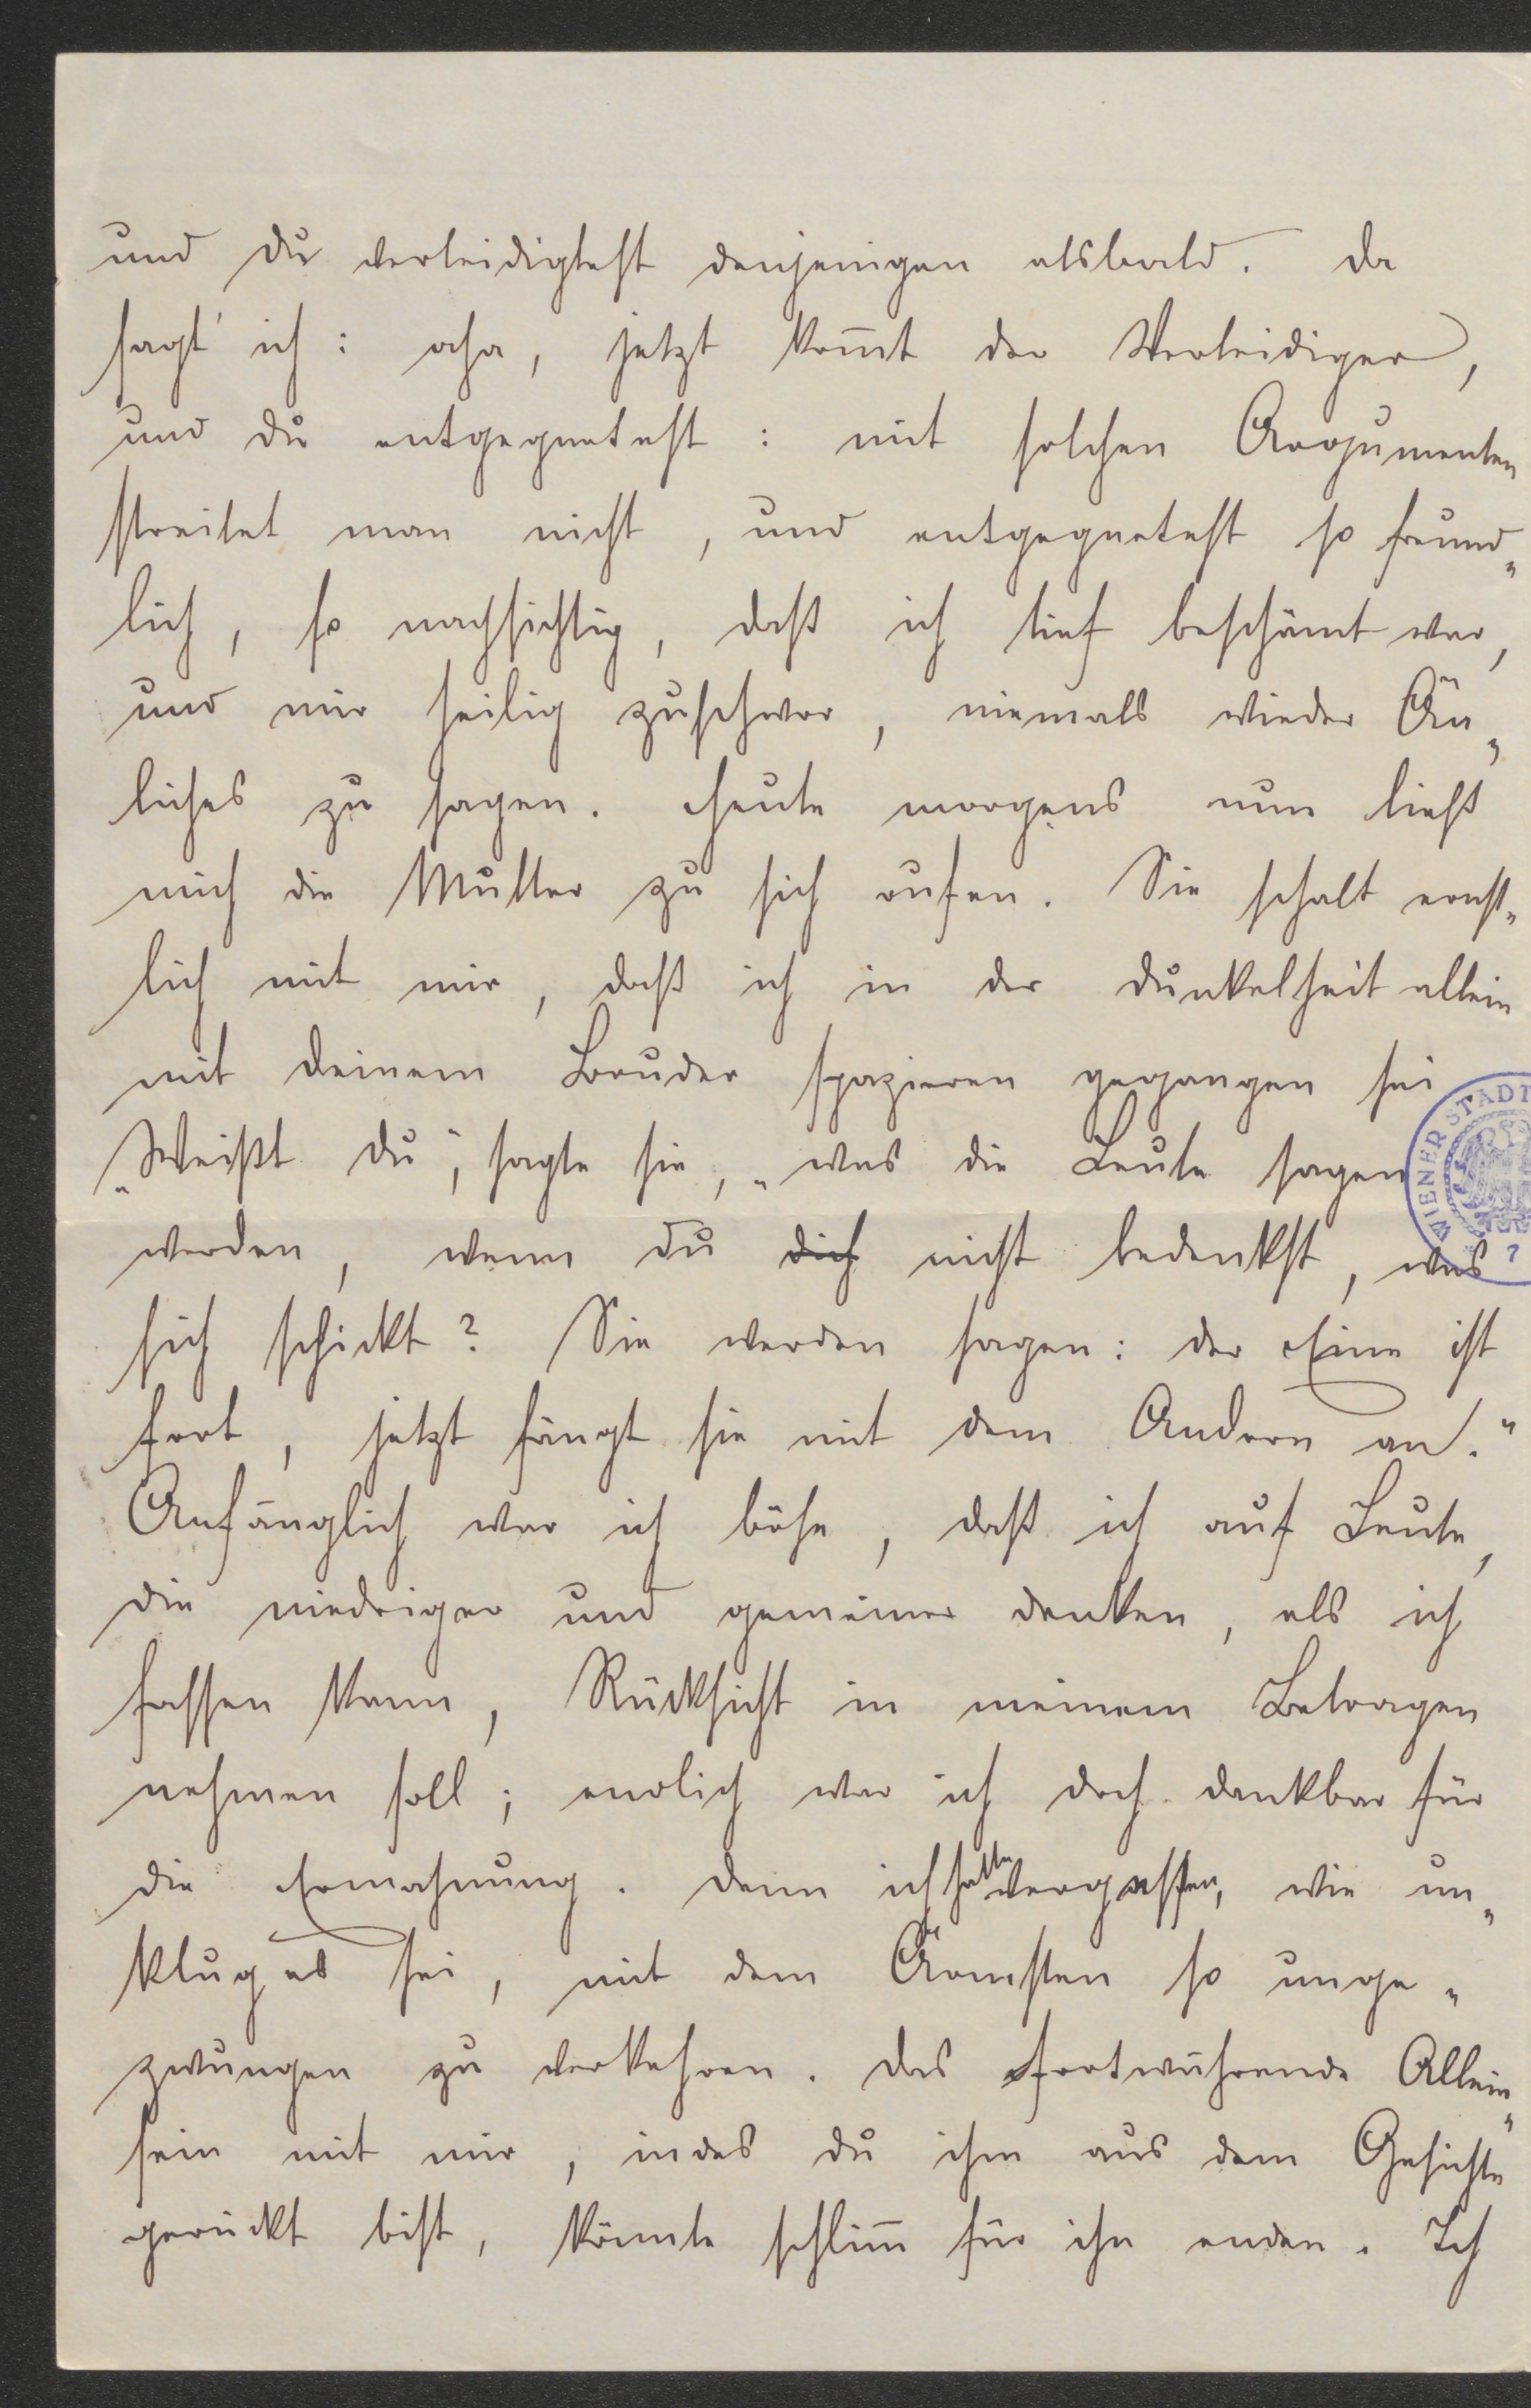 und du verteidigtest denjenigen alsbald. Da
sagt' ich: aha, jetzt kom̅t der Verteidiger,
und du entgegnetest: mit solchen Argumenten
streitet man nicht, und entgegnetest so freund„
lich, so nachsichtig, daß ich tief beschämt war,
und mir heilig zuschwor, niemals wieder Än„
liches zu sagen. Heute morgens nun ließ
mich die Mutter zu sich rufen. Sie schalt ernst„
lich mit mir, daß ich in der Dunkelheit allein
mit deinem Bruder spazieren gegangen sei
„Weißt du", sagte sie, „was die Leute sagen
werden, wenn du dich nicht bedenkst, was
sich schickt? Sie werden sagen: der Eine ist
fort, jetzt fängt sie mit dem Andern an."
Anfänglich war ich böse, daß ich auf Leute,
die niedriger und gemeiner denken, als ich
fassen kann, Rücksicht in meinem Betragen
nehmen soll; endlich war ich doch dankbar für
die Ermahnung. Denn ich hatte vergessen, wie un„
klug es sei, mit dem Ärmsten so unge„
zwungen zu verkehren. Das fortwährende Allein„
sein mit mir, indes du ihm aus dem Gesichte
gerückt bist, könnte schlim̅ für ihn enden. Ich
WIENER STADT
7